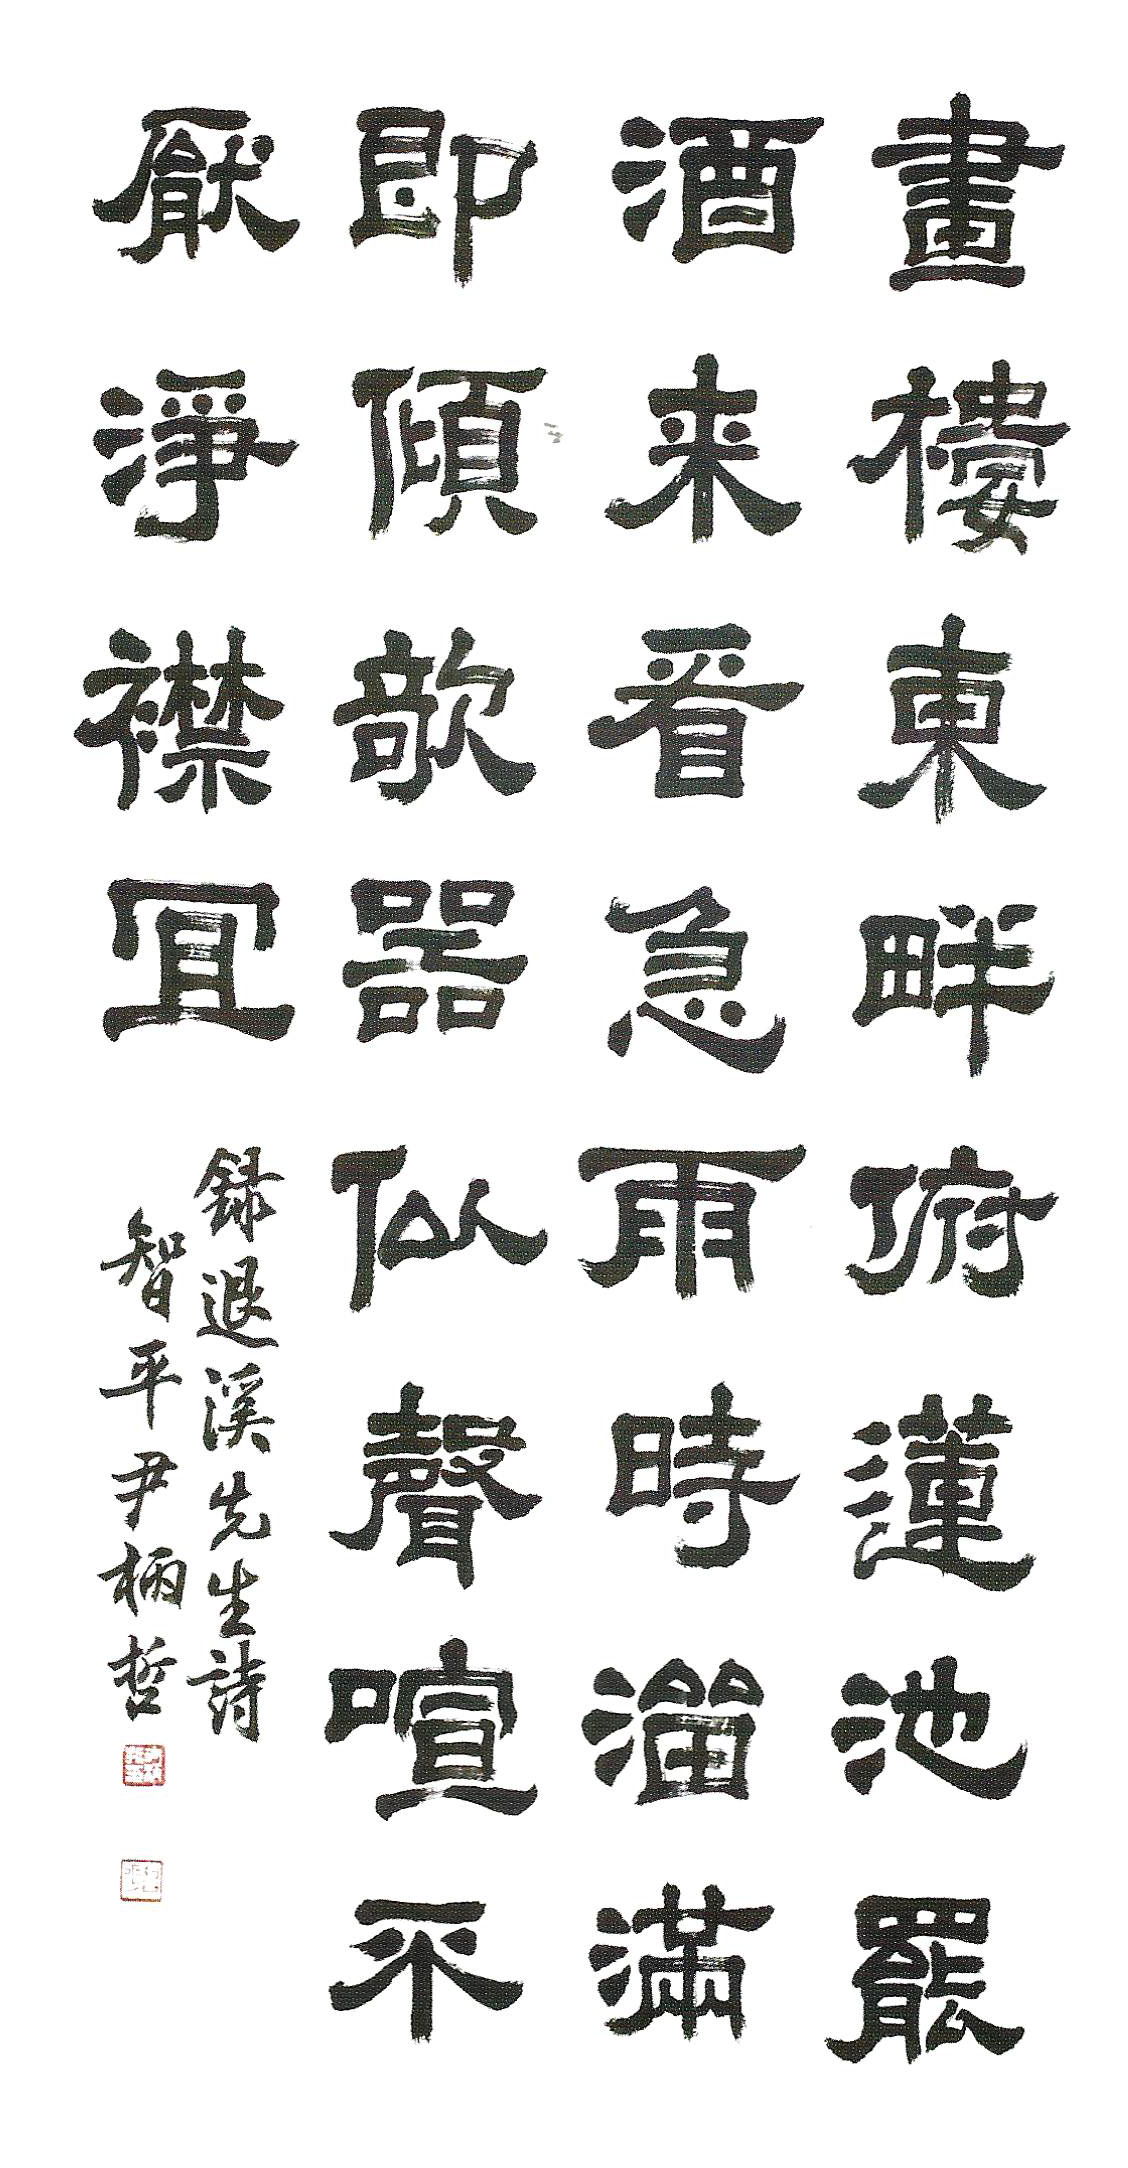 畫樓東畔俯蓮池罷
酒来看急雨時溜滿
即傾欹器似聲喧不
厭淨襟宜
録退溪先生詩
智平尹柄哲